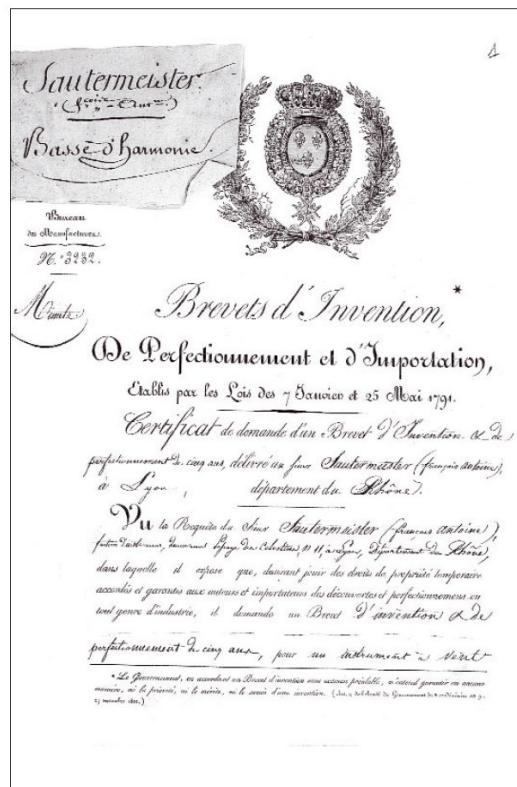 1
Sautermeister.
(fçois Ant.)
Basse d'harmonie.
Bureau
des Manufactures.
N.° 3232.
Minute
Brevets d'Invention, *
De Perfectionnement et d'Importation,
Etablis par les Lois des 7 Janvier et 25 Mai 1791.
Certificat de demande d'un Brevet d'Invention & de
perfectionnement de cinq ans, délivré au sieur Sautermeister (françois antoine),
à Lyon, département du Rhône.
Vu la Requête du Sieur Sautermeister (françois antoine),
facteur demeurant des Celestins N° 11, à Lyon, Département du Rhône,
dans laquelle il expose que, désirant jouir des droits de propriété temporaire
accordés et garantis aux auteurs et importateurs des découvertes et perfectionnemens en
tout genre d'industrie, il demande un Brevet d'invention & de
perfectionnement de cinq ans, pour un instrument à vent
* Le Gouvernement, en accordant un Brevet d'invention sans examen préalable, n'entend garantir en aucune
manière, ni la priorité, ni le mérite, ni le succès d'une invention.